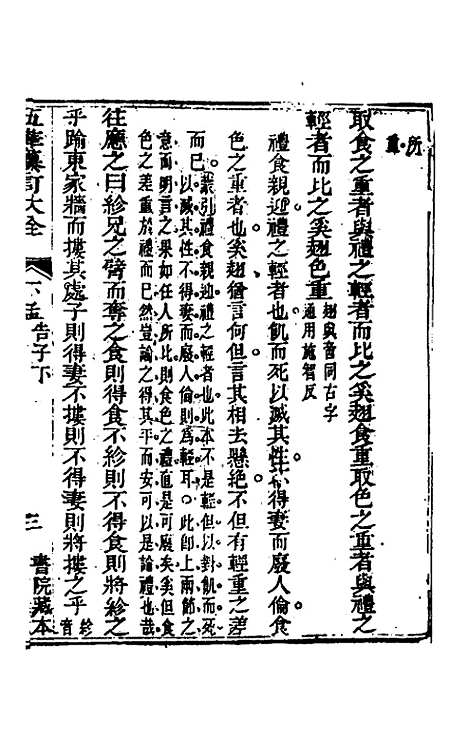 所重
取食之重者與禮之輕者而比之奚翅食重取色之重者與禮之
輕者而比之奚翅色重翅與啻同古字
通用施智反
禮食親迎禮之輕者也飢而死以滅其性不得妻而廢人倫食
色之重者也奚翅猶言何但言其相去懸絕不但有輕重之差
而已叢引禮食親迎禮之輕者也此本不是輕但以對飢而死
以滅其性不得妻而廢人倫則爲輕耳○此卽上兩節之
意而明言之果如任人所比則食色之禮直是可廢矣但食
色之差重於禮而已然豈論之得其平而安可以是論禮也哉
往應之曰紾兄之臂而奪之食則得食不紾則不得食則將紾之
乎踰東家牆而摟其處子則得妻不摟則不得妻則將摟之乎紾
音
五華纂訂大全
下孟告子下
三
書院藏本